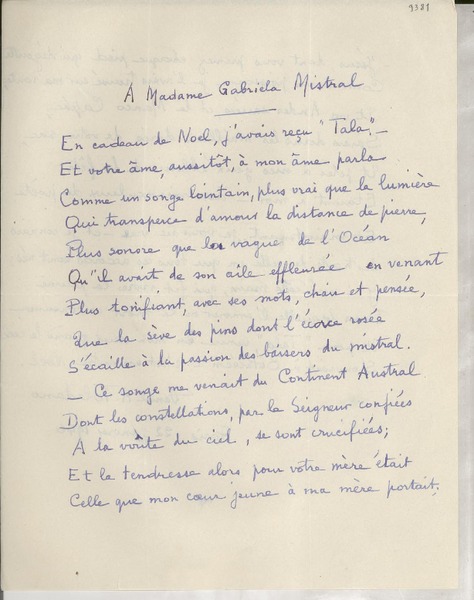 9381
A Madame Gabriela Mistral
En cadeau de Noël, j'avais reçu "Tala". —
Et votre âme, aussitôt, à mon âme parla
Comme un songe lointain, plus vrai que la lumière
Qui transperce d'amour la distance de pierre,
Plus sonore que la vague de l'Océan
Qu'il avait de son aile effleurée en venant
Plus tonifiant, avec ses mots, chair et pensée,
Que la sève des pins dont l'écorce rosée
S'écaille à la passion des baisers du mistral.
— Ce songe me venait du Continent Austral
Dont les constellations, par le Seigneur confiées
A la voûte du ciel, se sont crucifiées;
Et la tendresse alors pour votre mère était
Celle que mon cœur jeune à ma mère portait.